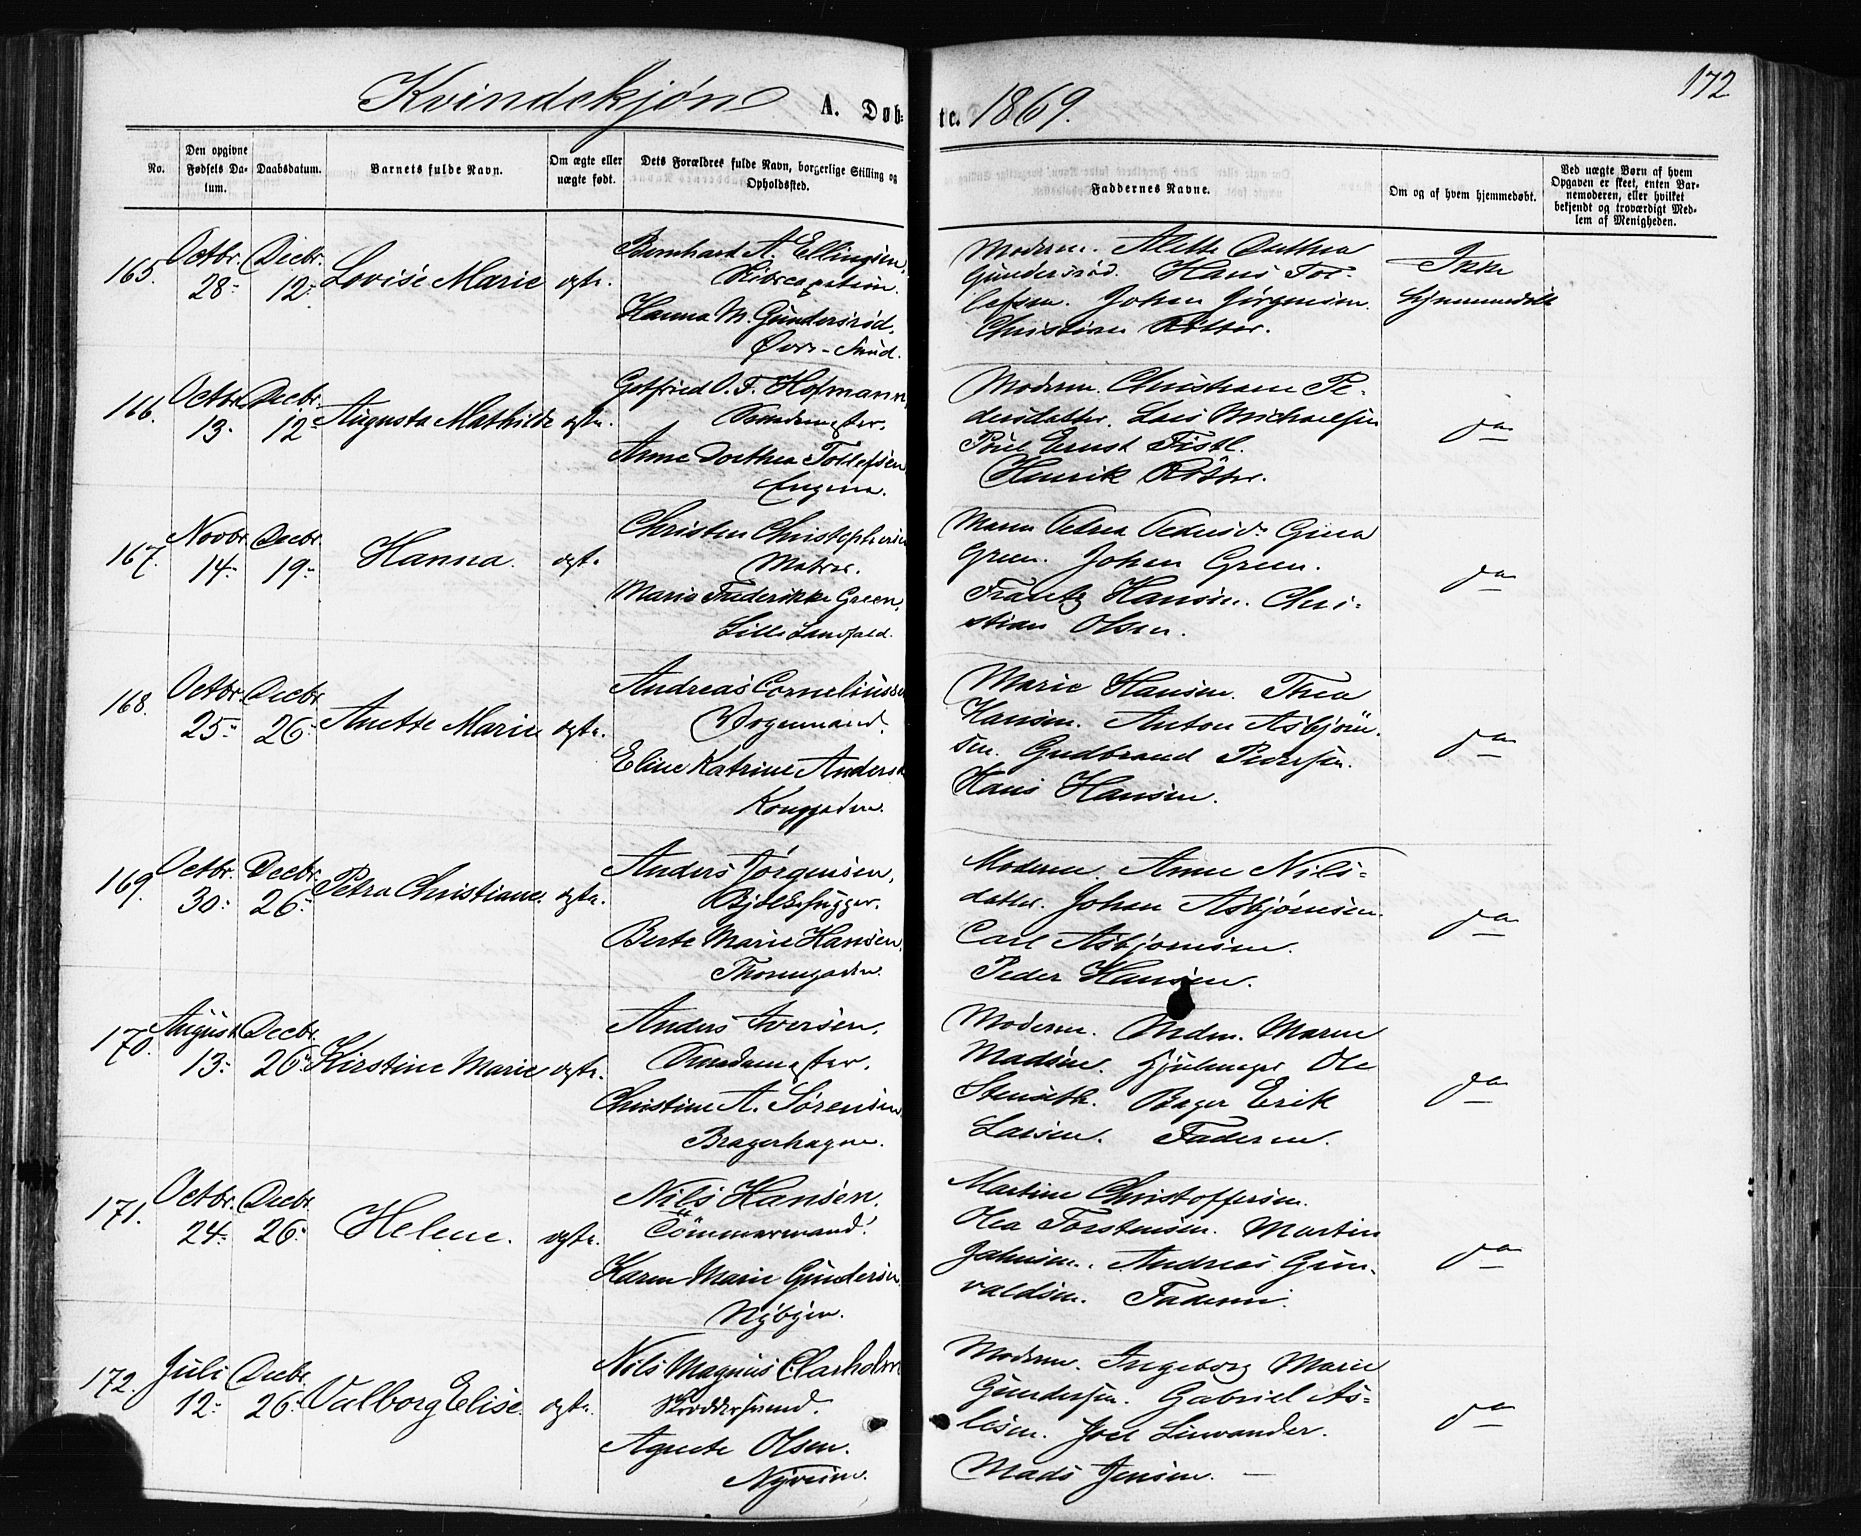 172
Kvindekjøn A. Døb-te. 1869.
No.
Den opgivne Fødsels Da-tum.
Daabsdatum.
Barnets fulde Navn.
Om ægte eller uægte født.
Dets Forældres fulde Navn, borgerlige Stilling og Opholdssted.
Faddernes Navne.
Om og af hvem hjemmedøbt.
Ved uægte Børn af hvem Opgaven er skeet, enten Bar-nemoderen, eller hvilket bekjendt og troværdigt Med-lem af Menigheden.
165. Octbr. 28. Decbr. 12. Lovise Marie ægte.
Bernhard A. Ellingsen,
Hanna M. Gundersrød,
Moderen. Alette Dorthea
Gundersrød. Hans Tol-
lefsen. Johan Jørgensen.
Christian Rötter.
Ikke
hjemmedøbt
166. Octbr. 13. Decbr. 12. Augusta Mathilde ægte.
Gotfried O. F. Hofmann,
Smedemester.
Anne Dorthea Tollefsen
Engene.
Moderen. Christiane Pe-
dersdatter. Lars Michaelsen
Poul Ernst Fistl.
Henrik Rötter.
do
167. Novbr. 14. Decbr. 19. Hanna. ægte.
Christen Christophersen
Matros.
Maria Frederikke Green,
Lille Landfald.
Maren Petrea Pedersdr. Gina
Green. Johan Green.
Frantz Hansen. Chri-
stian Olsen.
do
168. Octbr. 25. Decbr. 26. Anette Marie ægte.
Andreas Corneliussen
Vognmand.
Eline Katrine Andersd
Konggaden.
Marie Hansen. Thea
Hansen. Anton Asbjörn-
sen. Gudbrand Pedersen.
Hans Hansen.
do
169. Octbr. 30. Decbr. 26. Petra Christiane. ægte.
Anders Jørgensen,
Bjelkehugger.
Berte Marie Hansen,
Thornegaden.
Moderen. Anne Nils-
datter. Johan Asbjørnsen.
Carl Asbjørnsen.
Peder Hansen.
do
170. August 13. Decbr. 26. Kirstine Marie ægte.
Anders Iversen,
Smedemester.
Christine A. Sørensen
Bragerhagen.
Moderen. Mdm. Maren
Madsen. Hjulmager Ole
Stenseth. Bager Erik
Larsen. Faderen.
do
171. Octbr. 24. Decbr. 26. Helene. ægte.
Nils Hansen,
Tömmermand.
Karen Marie Gundersen
Nybyen.
Martine Christoffersen.
Olea Torstensen. Martin
Jahnsen. Andreas Gun-
valdsen. Faderen.
do
172. Juli 12. Decbr. 26. Valborg Elise. ægte.
Nils Magnus Clarholm
Agnete Olsen.
Nyveien.
Moderen. Ingeborg Marie
Gundersen. Gabriel As-
lesen. Joel Linvander.
Mads Jensen. —
do